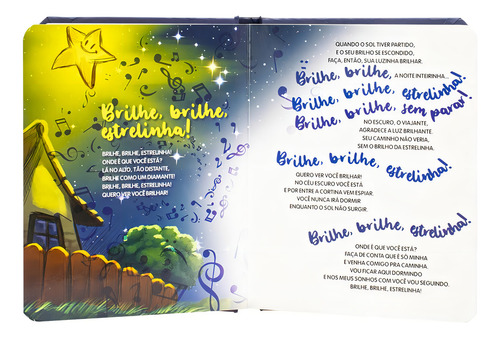 Brilhe, brilhe,
estrelinha!
BRILHE, BRILHE, ESTRELINHA!
ONDE É QUE VOCÊ ESTÁ?
LÁ NO ALTO, TÃO DISTANTE,
BRILHE COMO UM DIAMANTE!
BRILHE, BRILHE, ESTRELINHA!
QUERO VER VOCÊ BRILHAR!
QUANDO O SOL TIVER PARTIDO,
E O SEU BRILHO SE ESCONDIDO,
FAÇA, ENTÃO, SUA LUZINHA BRILHAR.
Brilhe, brilhe, A NOITE INTEIRINHA...
Brilhe, brilhe, estrelinha!
Brilhe, brilhe, sem parar!
NO ESCURO, O VIAJANTE,
AGRADECE A LUZ BRILHANTE.
SEU CAMINHO NÃO VERIA,
SEM O BRILHO DA ESTRELINHA.
Brilhe, brilhe, estrelinha!
QUERO VER VOCÊ BRILHAR!
NO CÉU ESCURO VOCÊ ESTÁ
E POR ENTRE A CORTINA VEM ESPIAR.
VOCÊ NUNCA IRÁ DORMIR
ENQUANTO O SOL NÃO SURGIR.
Brilhe, brilhe, estrelinha!
ONDE É QUE VOCÊ ESTÁ?
FAÇA DE CONTA QUE É SÓ MINHA
E VENHA COMIGO PRA CAMINHA.
VOU FICAR AQUI DORMINDO
E NOS MEUS SONHOS COM VOCÊ VOU SEGUINDO.
BRILHE, BRILHE, ESTRELINHA!